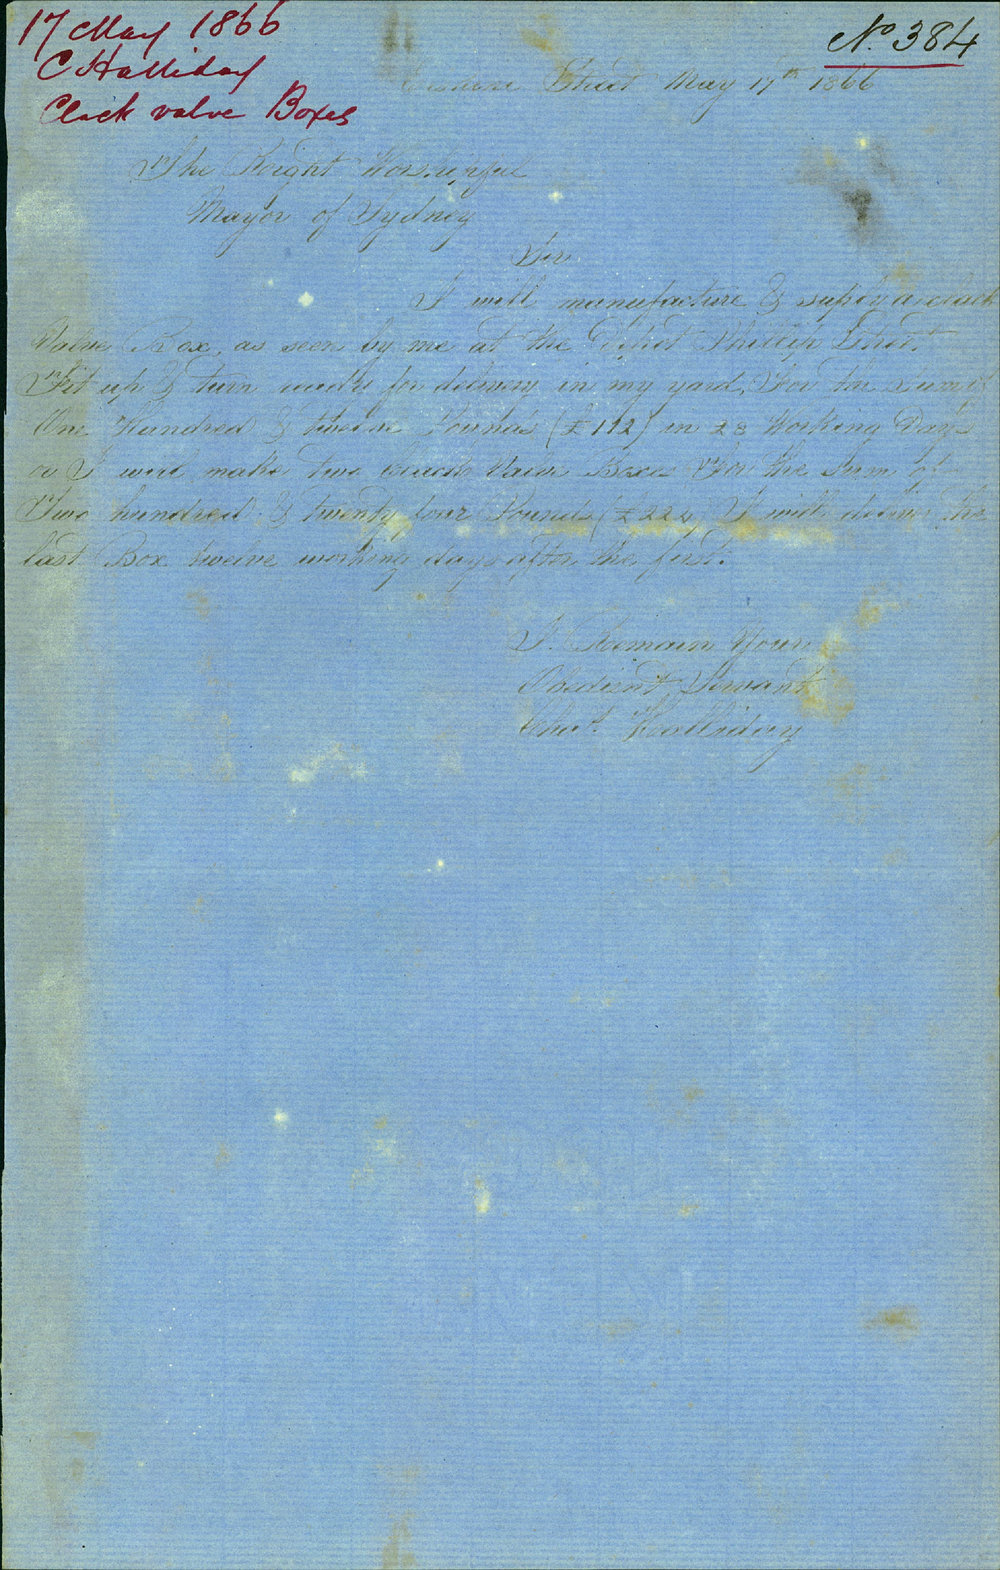 17 May 1866
C Halliday
Clack valve Boxes
No. 384
Street May 17th 1866
The Right Worshipful
Mayor of Sydney
Sir
I will manufacture & supply a clack
Valve Box, as seen by me at the Depot Phillip Street
Fit up & turn ready for delivery in my yard, For the sum of
One Hundred & twelve Pounds (£112) in 28 Working Days
or I will make two clack Valve Boxes For the Sum of
Two hundred & twenty four Pounds (£224) I will deliver the
last Box twelve working days after the first.
I Remain Your
Obedient Servant
Chas. Halliday